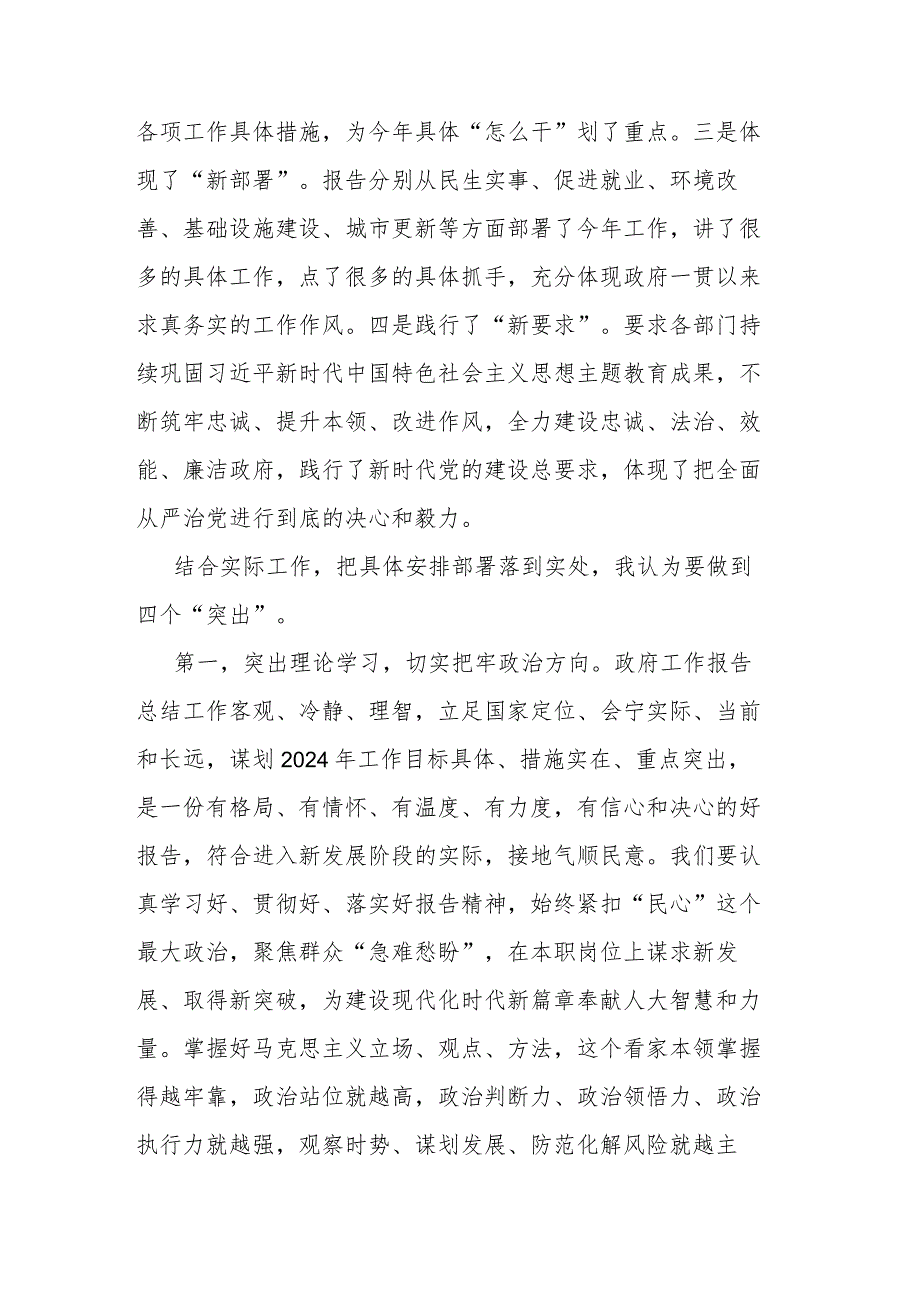 各项工作具体措施，为今年具体“怎么干”划了重点。三是体
现了“新部署”。报告分别从民生实事、促进就业、环境改
善、基础设施建设、城市更新等方面部署了今年工作，讲了很
多的具体工作，点了很多的具体抓手，充分体现政府一贯以来
求真务实的工作作风。四是践行了“新要求”。要求各部门持
续巩固习近平新时代中国特色社会主义思想主题教育成果，不
断筑牢忠诚、提升本领、改进作风，全力建设忠诚、法治、效
能、廉洁政府，践行了新时代党的建设总要求，体现了把全面
从严治党进行到底的决心和毅力。
结合实际工作，把具体安排部署落到实处，我认为要做到
四个“突出”。
第一，突出理论学习，切实把牢政治方向。政府工作报告
总结工作客观、冷静、理智，立足国家定位、会宁实际、当前
和长远，谋划2024年工作目标具体、措施实在、重点突出，
是一份有格局、有情怀、有温度、有力度，有信心和决心的好
报告，符合进入新发展阶段的实际，接地气顺民意。我们要认
真学习好、贯彻好、落实好报告精神，始终紧扣“民心”这个
最大政治，聚焦群众“急难愁盼”，在本职岗位上谋求新发
展、取得新突破，为建设现代化时代新篇章奉献人大智慧和力
量。掌握好马克思主义立场、观点、方法，这个看家本领掌握
得越牢靠，政治站位就越高，政治判断力、政治领悟力、政治
执行力就越强，观察时势、谋划发展、防范化解风险就越主